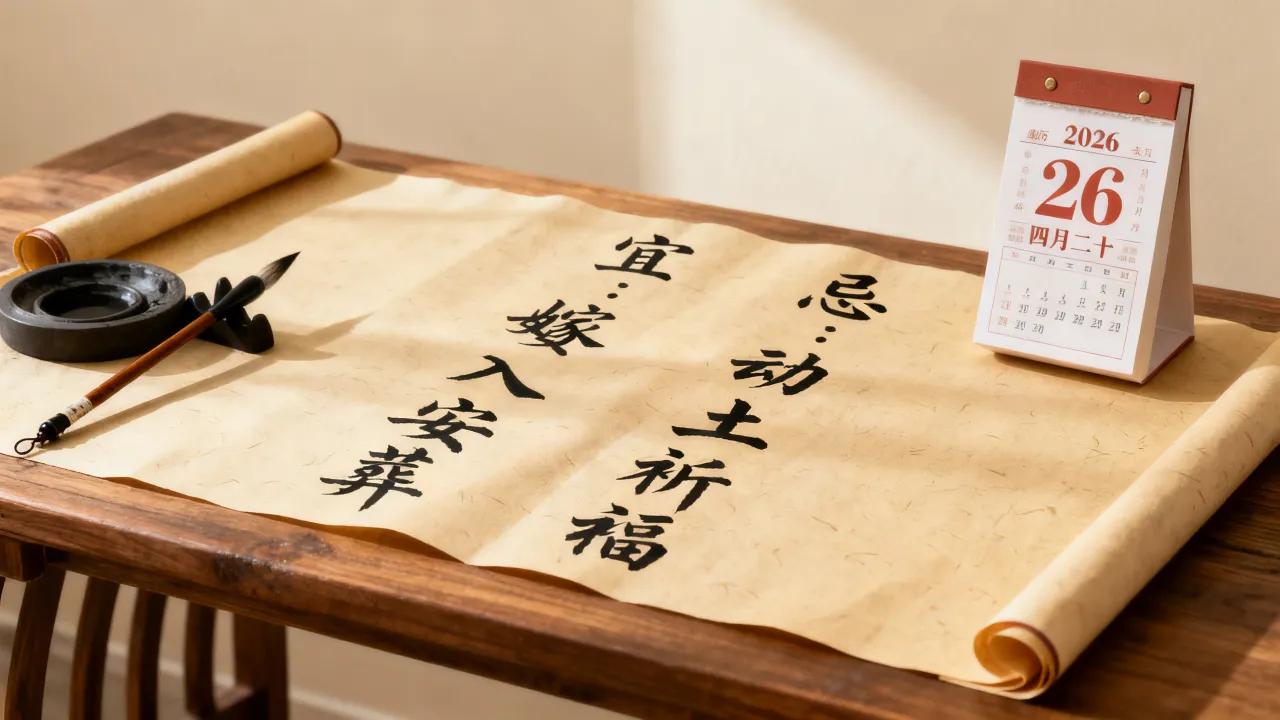 宜：嫁入安葬
忌：动土祈福
2026
26
四月二十